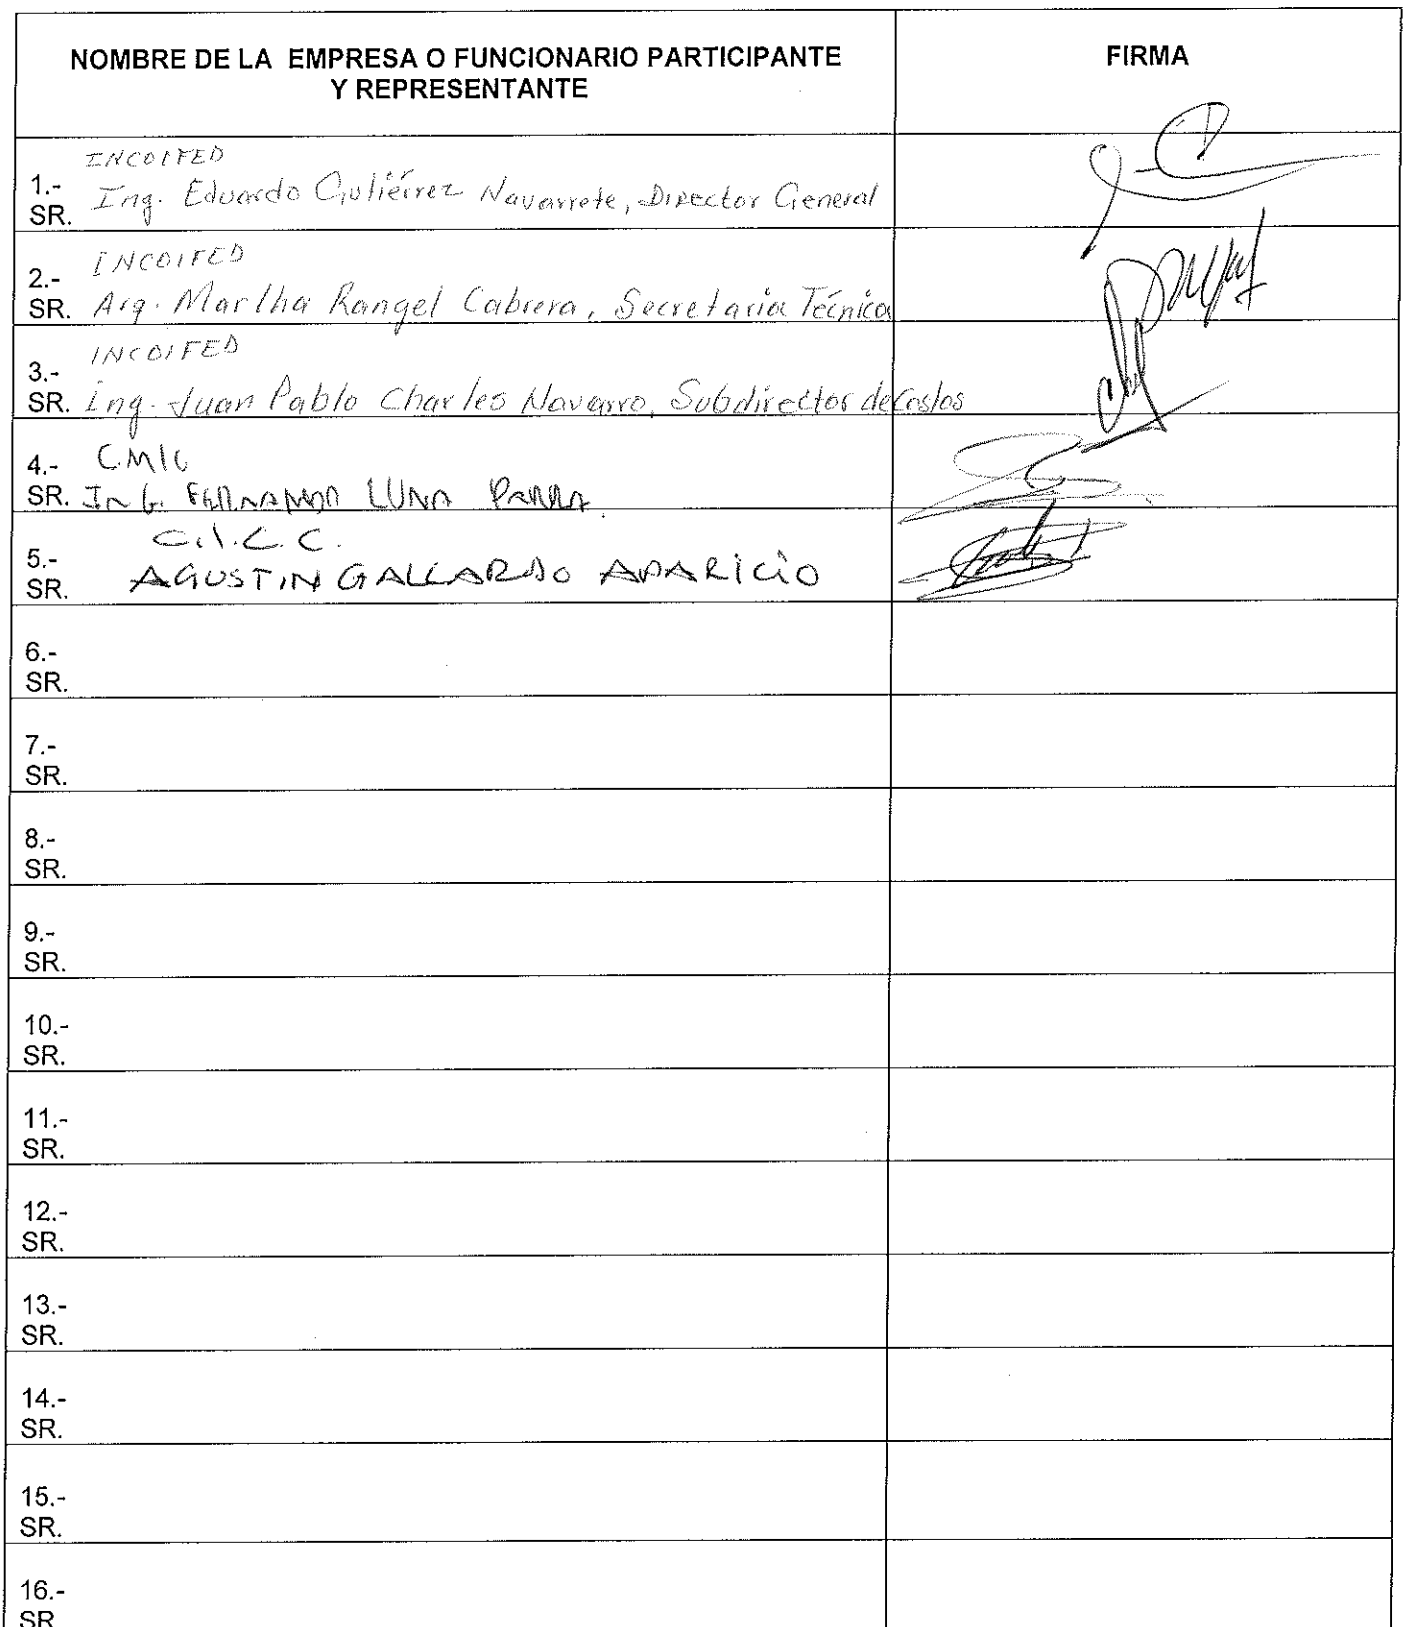 NOMBRE DE LA EMPRESA O FUNCIONARIO PARTICIPANTE
Y REPRESENTANTE
FIRMA
INCOIFED
1.-
SR. Ing. Eduardo Gutiérrez Navarrete, Director General
INCOIFED
2.-
SR. Arq. Martha Rangel Cabrera, Secretaria Técnica
INCOIFED
3.-
SR. Ing. Juan Pablo Charles Navarro, Subdirector de Costos
4.- CMIC
SR. ING. FERNANDO LUNA PARRA
C.I.C.C.
5.-
SR. AGUSTIN GALLARDO APARICIO
6.-
SR.
7.-
SR.
8.-
SR.
9.-
SR.
10.-
SR.
11.-
SR.
12.-
SR.
13.-
SR.
14.-
SR.
15.-
SR.
16.-
SR